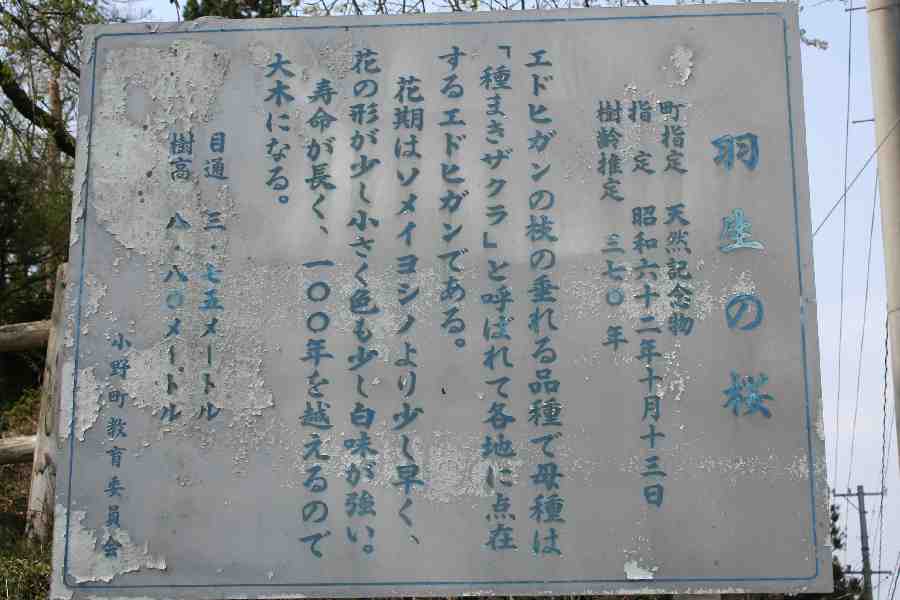 羽生の桜
町指定 天然記念物
指定 昭和六十二年十月十三日
樹齢推定 三七〇年
エドヒガンの枝の垂れる品種で母種は
「種まきザクラ」と呼ばれて各地に点在
するエドヒガンである。
花期はソメイヨシノより少し早く、
花の形が少し小さく色も少し白味が強い。
寿命が長く、一〇〇年を越えるので
大木になる。
目通 三・七五メートル
樹高 八・八〇メートル
小野町教育委員会